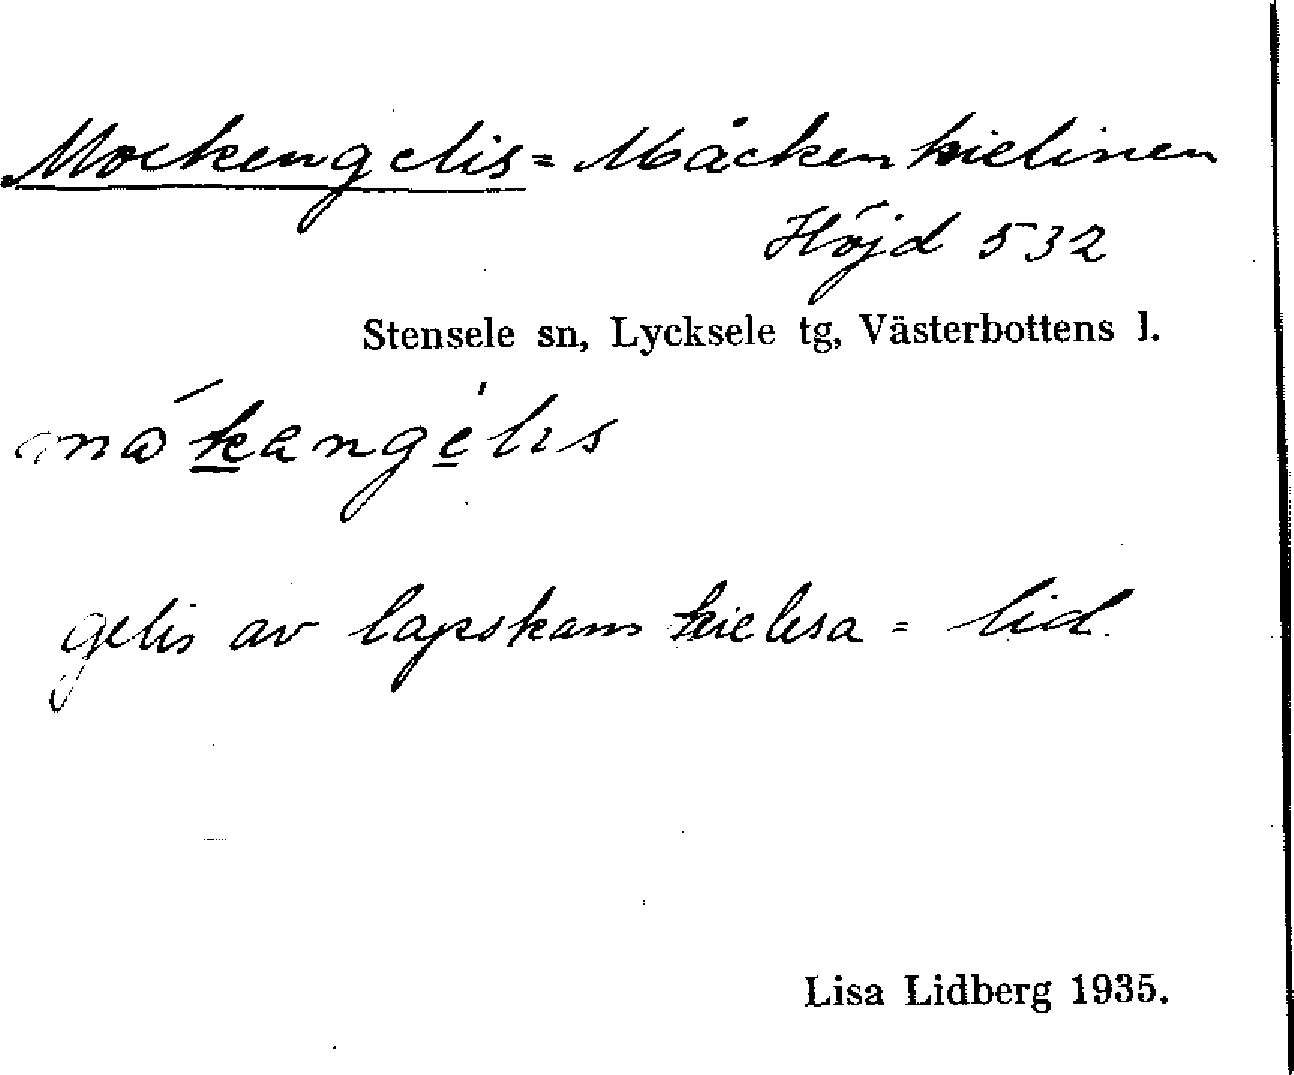 Mockengelis = Måckenkielinen
Höjd 532
Stensele sn, Lycksele tg, Västerbottens l.
måkangelis
gelis av lapskans kielisa = lid.
Lisa Lidberg 1935.